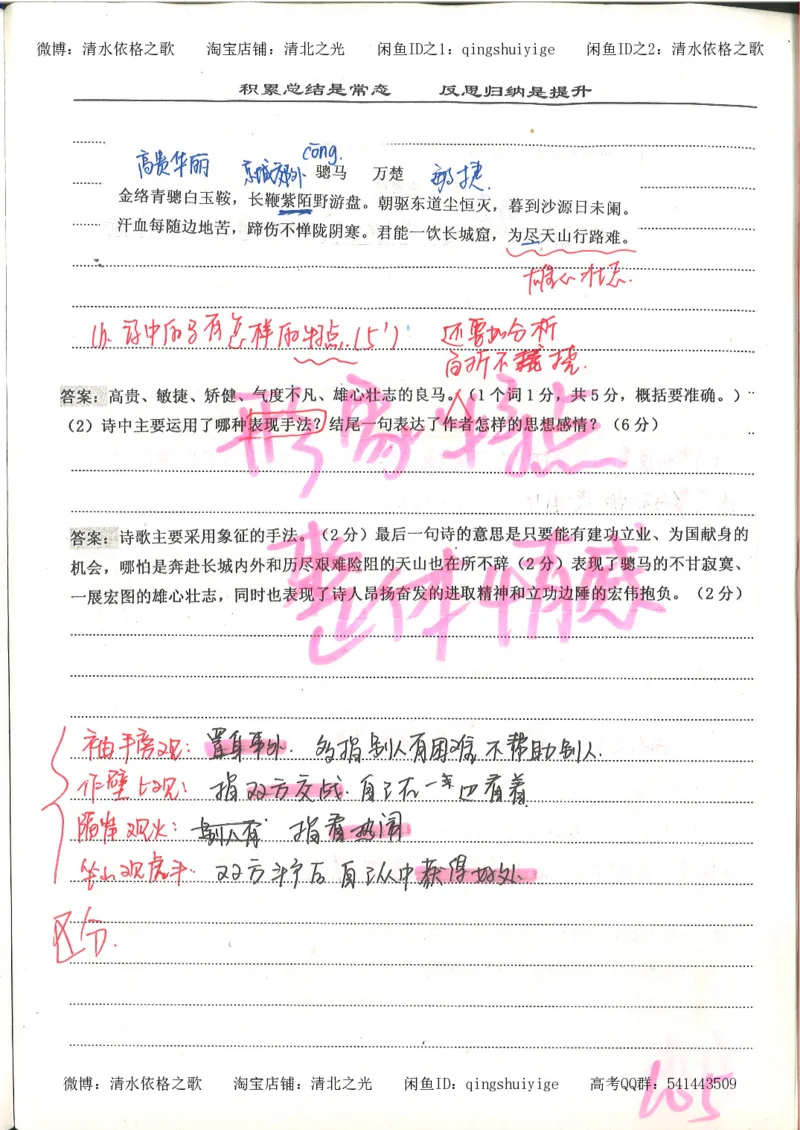 微博：清水依格之歌 淘宝店铺：清北之光 闲鱼ID之1：qingshuiyige 闲鱼ID之2：清水依格之歌
积累总结是常态 反思归纳是提升
cōng
高贵华丽 京城郊外 骢马 万楚 敏捷
金络青骢白玉鞍，长鞭紫陌野游盘。朝驱东道尘恒灭，暮到沙源日未阑。
汗血每随边地苦，蹄伤不惮陇阴寒。君能一饮长城窟，为尽天山行路难。
雄心壮志.
(1). 诗中的马有怎样的特点.(5') 还要加分析
否则不
答案：高贵、敏捷、矫健、气度不凡、雄心壮志的良马。（1个词1分，共5分，概括要准确。）
形象特点
（2）诗中主要运用了哪种表现手法？结尾一句表达了作者怎样的思想感情？（6分）
答案：诗歌主要采用象征的手法。（2分）最后一句诗的意思是只要能有建功立业、为国献身的
机会，哪怕是奔赴长城内外和历尽艰难险阻的天山也在所不辞（2分）表现了骢马的不甘寂寞、
整体情感
一展宏图的雄心壮志，同时也表现了诗人昂扬奋发的进取精神和立功边陲的宏伟抱负。（2分）
袖手旁观：置身事外. 多指别人有困难不帮助别人.
作壁上观：指双方交战 自己在一边看着
隔岸观火：别人有 指看热闹
坐山观虎斗. 双方斗争后自己从中获得好处.
区分.
微博：清水依格之歌 淘宝店铺：清北之光 闲鱼ID：qingshuiyige 高考QQ群：541443509
165